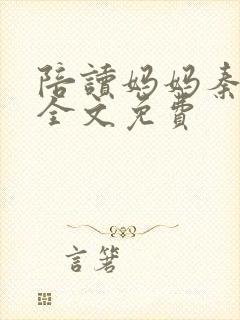 陪讀媽媽秦
全文免費
言箸